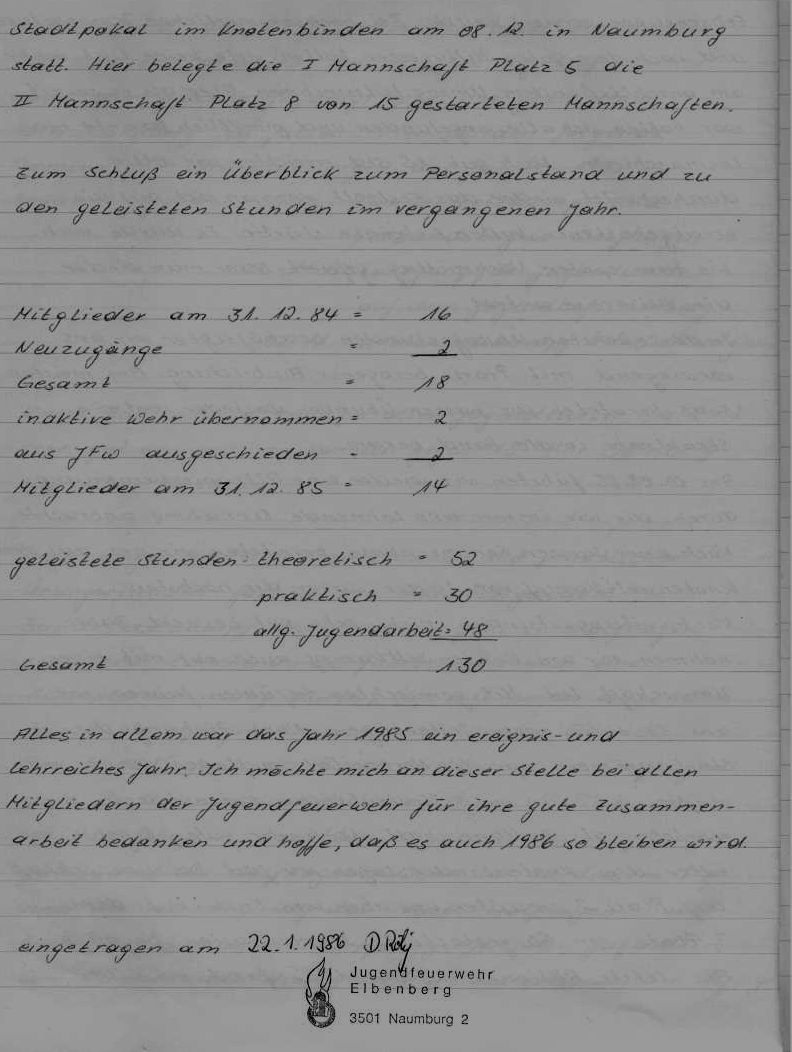 Stadtpokal im Knotenbinden am 08.12. in Naumburg
statt. Hier belegte die I Mannschaft Platz 5 die
II Mannschaft Platz 8 von 15 gestarteten Mannschaften.
Zum Schluß ein Überblick zum Personalstand und zu
den geleisteten Stunden im vergangenen Jahr.
Mitglieder am 31.12.84 = 16
Neuzugänge = 2
Gesamt = 18
inaktive Wehr übernommen = 2
aus JFw ausgeschieden - 2
Mitglieder am 31.12.85 = 14
geleistete Stunden: theoretisch = 52
praktisch = 30
allg. Jugendarbeit = 48
Gesamt 130
Alles in allem war das Jahr 1985 ein ereignis- und
lehrreiches Jahr. Ich möchte mich an dieser Stelle bei allen
Mitgliedern der Jugendfeuerwehr für ihre gute Zusammen-
arbeit bedanken und hoffe, daß es auch 1986 so bleiben wird.
eingetragen am 22.1.1986 D.
Jugendfeuerwehr
Elbenberg
3501 Naumburg 2